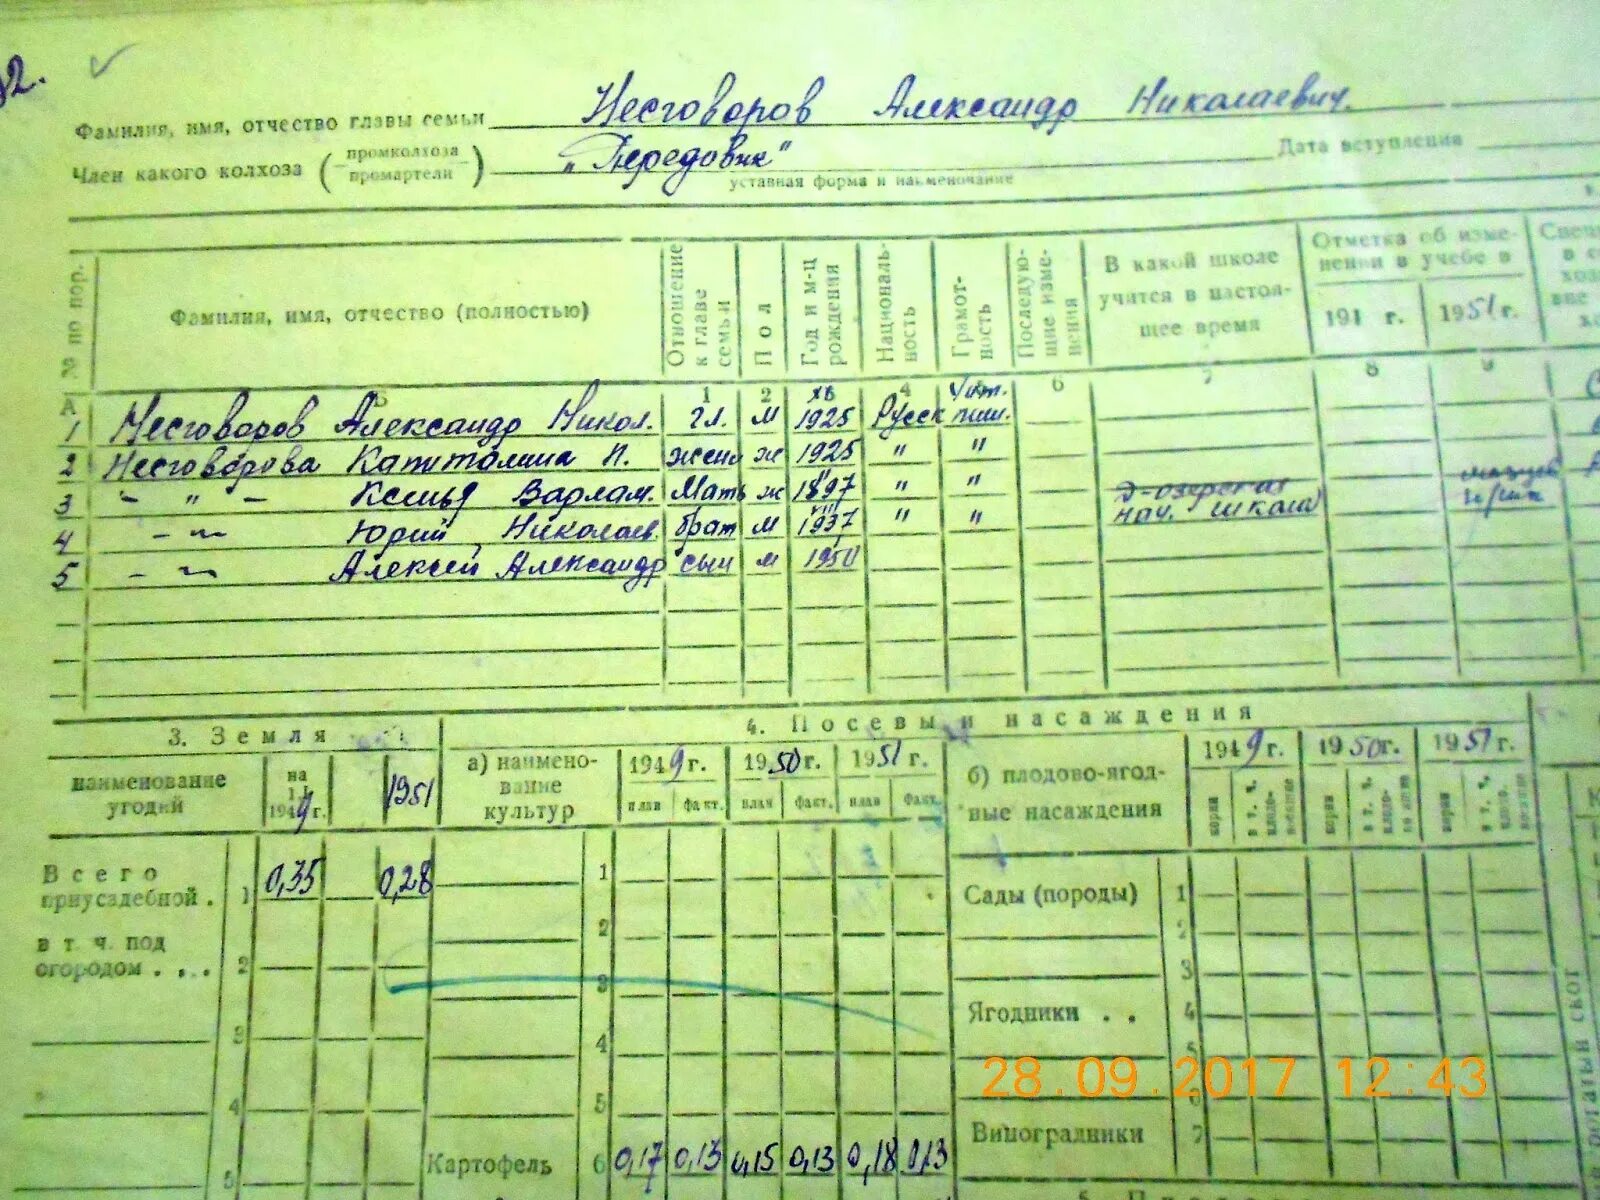 Фамилия, имя, отчество главы семьи Несговоров Александр Николаевич.
Член какого колхоза (промколхоза промартели) „Передовик"
уставная форма и наименование
Дата вступления
№ по пор.
Фамилия, имя, отчество (полностью)
Отношение к главе семьи
Пол
Год и м-ц рождения
Национальность
Грамотность
Последующие изменения
В какой школе учится в настоящее время
Отметка об изменении в учебе в
191 г.
1951 г.
А 1 2 4 6 7 8 9
1 Несговоров Александр Никол. гл. м XII 1925 Русск чит. пиш.
2 Несговорова Капитолина П. жена ж 1925 " "
3 - " - Варлам. Мать ж 1897 " "
4 - " Юрий Николаев. брат м VIII 1937 " " нач. школа
5 - " Алексей Александр сын м 1950
3. Земля
наименование угодий
на 1/I 1949 г.
1951
Всего приусадебной . 1 0,35 0,28
в т. ч. под огородом . . . 2
3
4
5
4. Посевы и насаждения
а) наименование культур
1949 г. 1950 г. 1951 г.
план факт. план факт. план факт.
1
2
3
4
5
Картофель 6 0,17 0,13 0,15 0,13 0,18 0,13
б) плодово-ягодные насаждения
1949 г. 1950 г. 1951 г.
Сады (породы) 1
2
3
Ягодники . . 4
5
Виноградники 7
28.09.2017 12:43